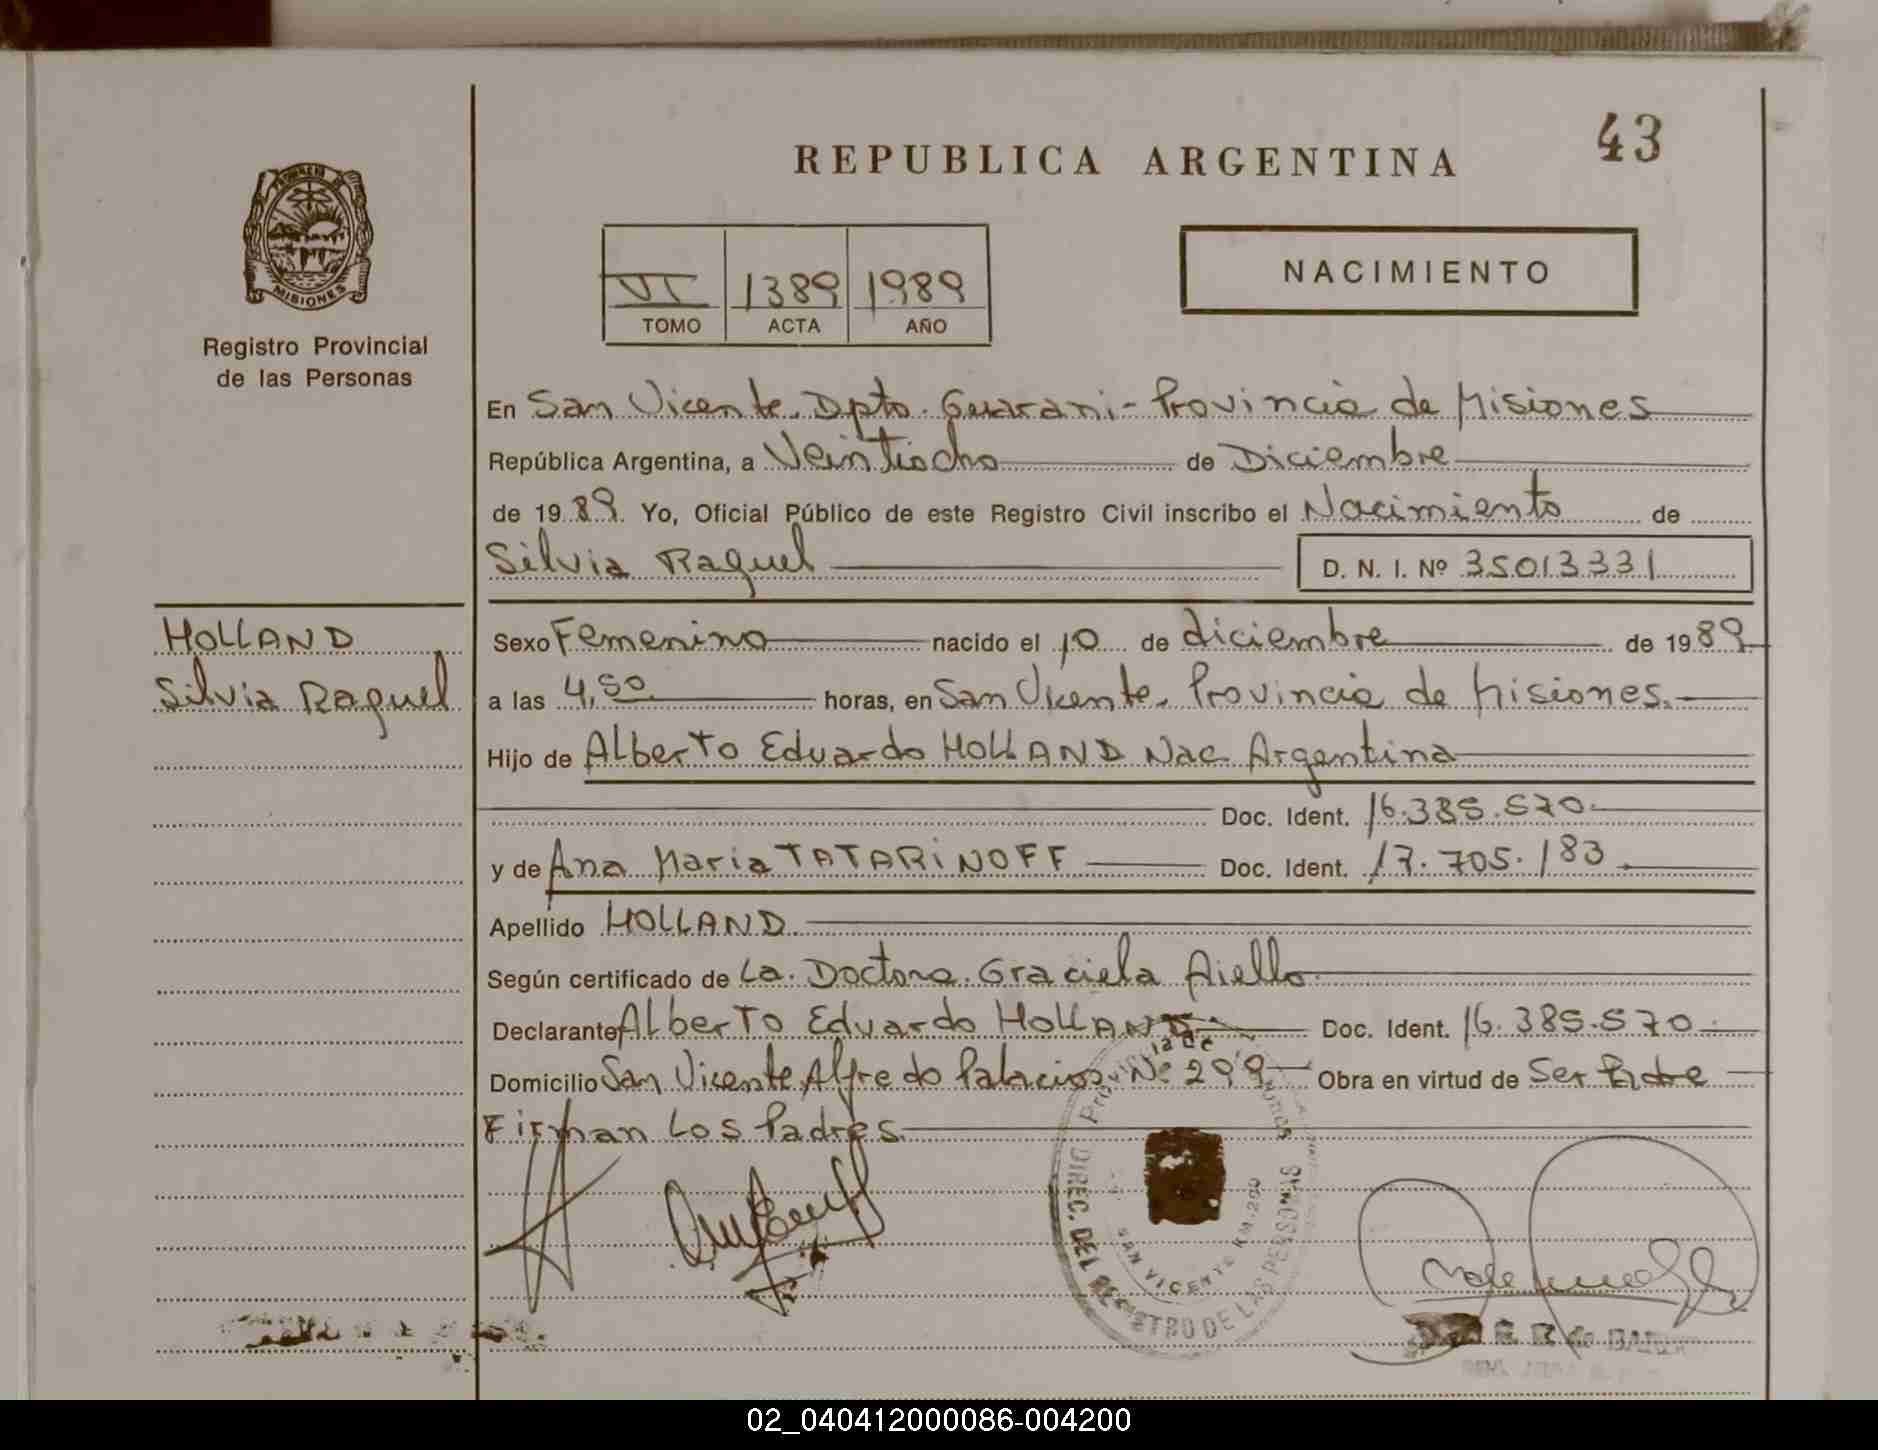 43
REPUBLICA ARGENTINA
PROVINCIA DE
MISIONES
Registro Provincial
de las Personas
VI 1389 1989
TOMO ACTA AÑO
NACIMIENTO
En San Vicente. Dpto. Guarani - Provincia de Misiones
República Argentina, a Veintiocho de Diciembre
de 1989. Yo, Oficial Público de este Registro Civil inscribo el Nacimiento de
Silvia Raquel D. N. I. Nº 35013331
HOLLAND
Silvia Raquel
Sexo Femenino nacido el 10 de diciembre de 1989
a las 4,50 horas, en San Vicente. Provincia de Misiones.
Hijo de Alberto Eduardo HOLLAND Nac. Argentina
Doc. Ident. 16.385.570
y de Ana Maria TATARINOFF Doc. Ident. 17.705.183
Apellido HOLLAND
Según certificado de La Doctora Graciela Aiello
Declarante Alberto Eduardo HOLLAND Doc. Ident. 16.385.570
Domicilio San Vicente Alfredo Palacios Nº 299 Obra en virtud de Ser Padre
Firman Los Padres
Provincia de Misiones
DIREC. DEL REGISTRO DE LAS PERSONAS
SAN VICENTE KM. 200
02_040412000086-004200